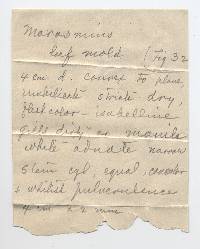 Marasmius
leaf mold (Fig 32
4 cm d. convex to plane
umbilicate striate dry,
flesh color - isabelline
gills dist or
white adnate narrow
stem cyl, equal, concolor
whitish pulverulence
4 cm x 2 mm